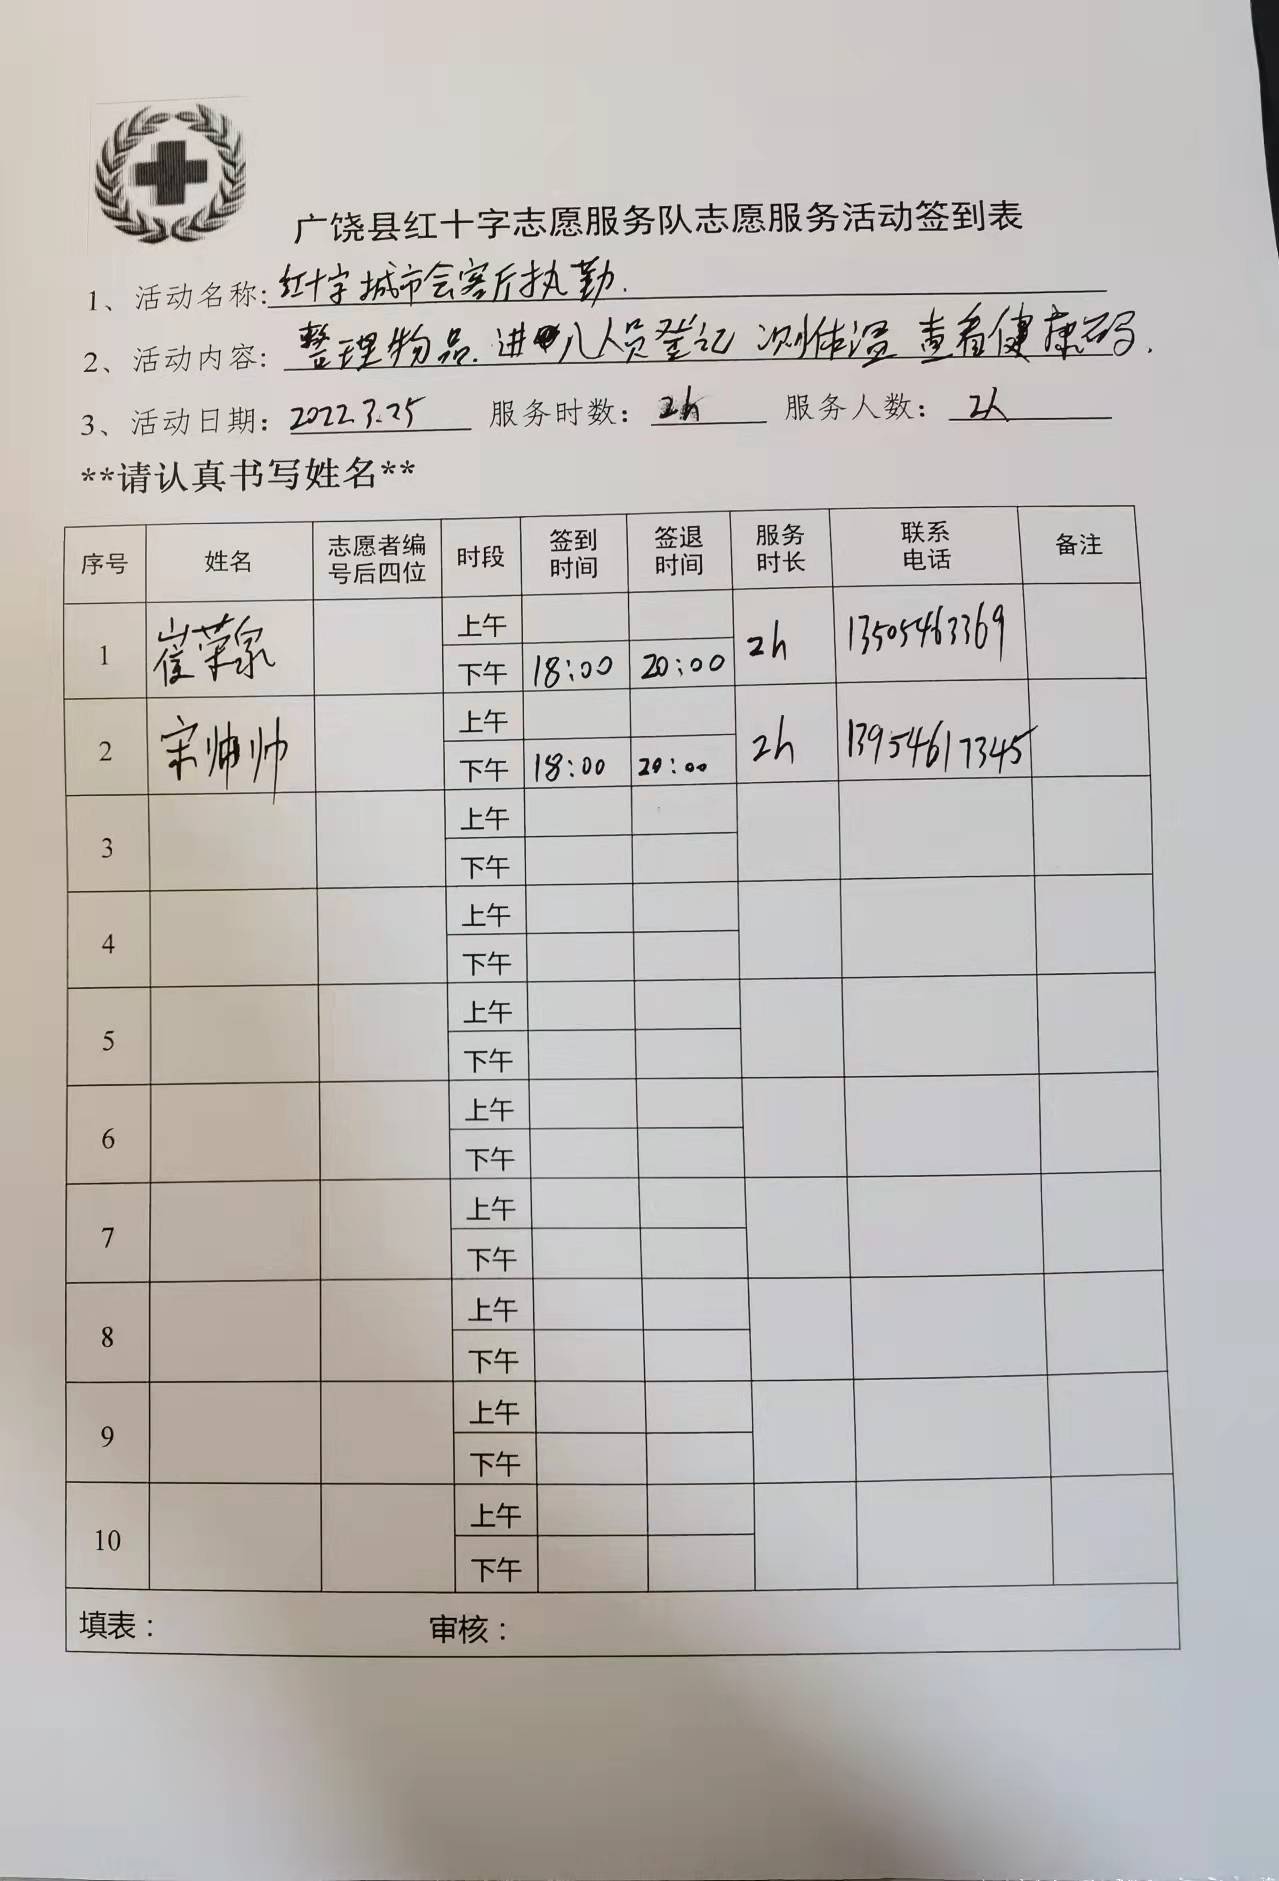 广饶县红十字志愿服务队志愿服务活动签到表
1、活动名称:红十字城市会客厅执勤.
2、活动内容: 整理物品.进入人员登记 测体温 查看健康码.
3、活动日期: 2022.3.25 服务时数: 2h 服务人数: 2人
**请认真书写姓名**
序号 姓名 志愿者编号后四位 时段 签到时间 签退时间 服务时长 联系电话 备注
1 崔荣家 上午 2h 13505463369
下午 18:00 20:00
2 宋帅帅 上午 2h 13954617345
下午 18:00 20:00
3 上午
下午
4 上午
下午
5 上午
下午
6 上午
下午
7 上午
下午
8 上午
下午
9 上午
下午
10 上午
下午
填表: 审核: